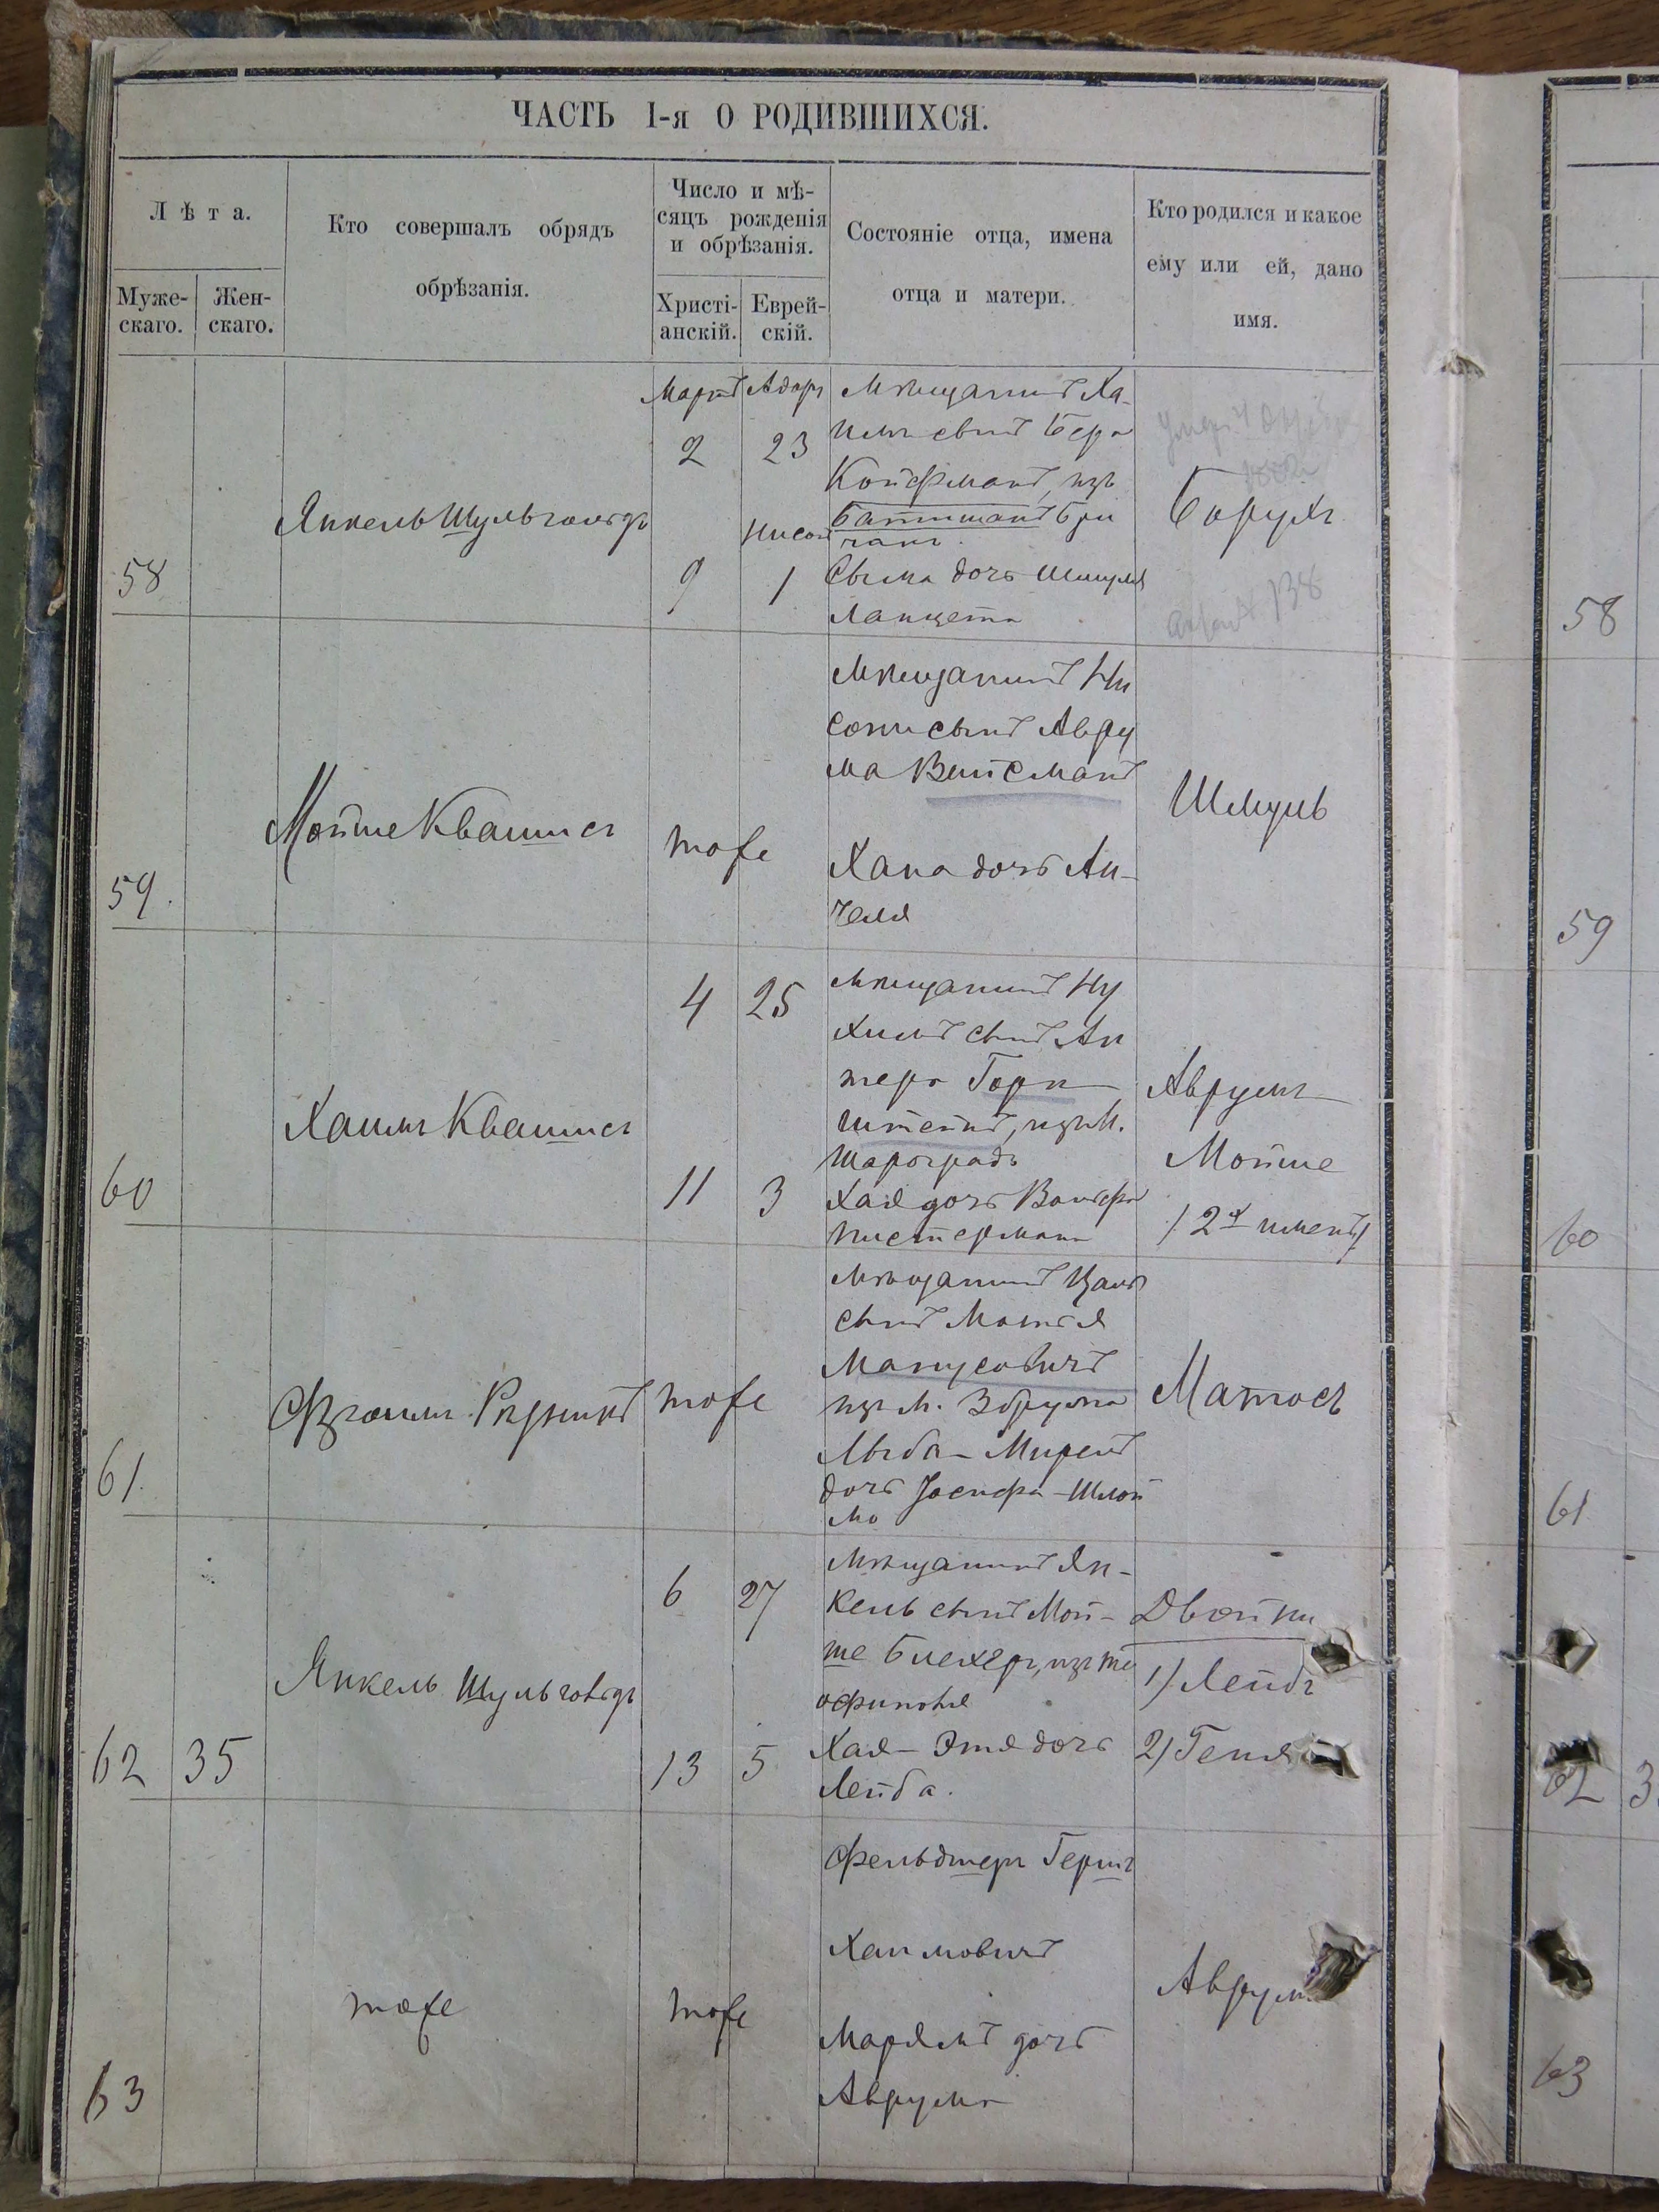 ЧАСТЬ 1-я О РОДИВШИХСЯ.
Лѣта.
Муже-
скаго.
Жен-
скаго.
Кто совершалъ обрядъ
обрѣзанія.
Число и мѣ-
сяцъ рожденія
и обрѣзанія.
Христі-
анскій.
Еврей-
скій.
Состояніе отца, имена
отца и матери.
Кто родился и какое
ему или ей, дано
имя.
58
Янкель Шульгольдъ
Мартъ Адаръ
2 23
Нисонъ
9 1
Мѣщанинъ Ха-
имъ сынъ Бера
Койфманъ, изъ
дочь Шмуля
Борухъ
138
59.
Мойше Квашисъ
тоже
Мѣщанинъ Ни
сонъ сынъ Авру
ма Вайсманъ
Хана дочь Ан-
челя
Шмуль
60
Хаимъ Квашисъ
4 25
11 3
Мѣщанинъ Ну
химъ сынъ Ан
шера Горн
штейнъ, изъ М.
Шарограда
Хая дочь Вольфа
Аврумъ
Мойше
/2 имени/
61.
тоже
Мѣщанинъ
сынъ
Манусовичъ
изъ М.
Мирель
дочь Іосифа-Шлой
мо
Матосъ
62 35
Янкель Шульгольдъ
6 27
13 5
Мѣщанинъ Ян-
кель сынъ Мой-
ше Блехеръ, изъ Те
офиполя
Хая-Этя дочь
Лейба.
Двойни
1) Лейбъ
2) Геня
63
тоже
тоже
Фельдшеръ Гершъ
Хаимовичъ
Марямъ дочь
Аврума
Аврумъ
58
59
60
61
62 3
63